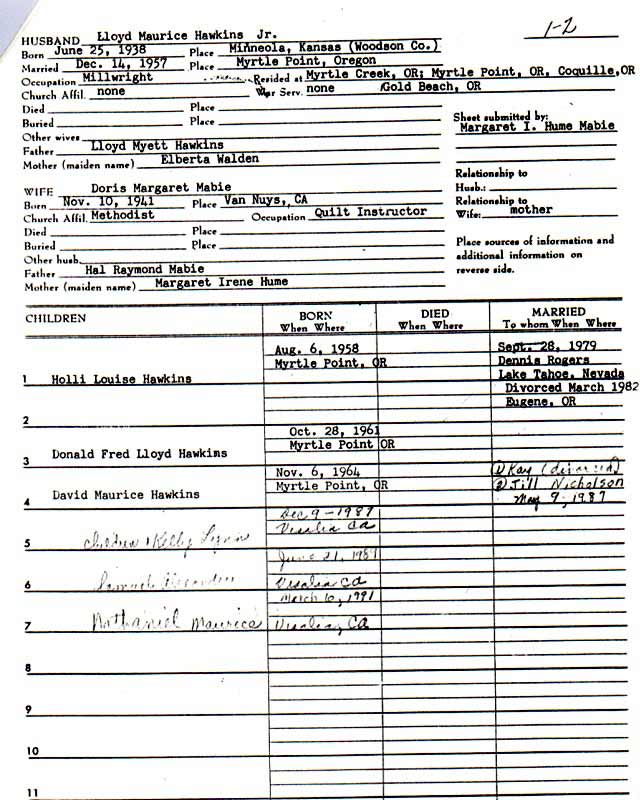 1-2
HUSBAND Lloyd Maurice Hawkins Jr.
Born June 25, 1938 Place Minneola, Kansas (Woodson Co.)
Married Dec. 14, 1957 Place Myrtle Point, Oregon
Occupation Millwright Resided at Myrtle Creek, OR; Myrtle Point, OR, Coquille, OR
Church Affil. none War Serv. none Gold Beach, OR
Died Place
Buried Place
Other wives
Father Lloyd Myett Hawkins
Mother (maiden name) Elberta Walden
Sheet submitted by:
Margaret I. Hume Mabie
Relationship to
Husb.:
Relationship to
Wife: mother
Place sources of information and
additional information on
reverse side.
WIFE Doris Margaret Mabie
Born Nov. 10, 1941 Place Van Nuys, CA
Church Affil. Methodist Occupation Quilt Instructor
Died Place
Buried Place
Other husb.
Father Hal Raymond Mabie
Mother (maiden name) Margaret Irene Hume
CHILDREN BORN DIED MARRIED
When Where When Where To whom When Where
Aug. 6, 1958 Sept. 28, 1979
Myrtle Point, OR Dennis Rogers
1 Holli Louise Hawkins Lake Tahoe, Nevada
Divorced March 1982
Eugene, OR
2
Oct. 28, 1961
Myrtle Point OR
3 Donald Fred Lloyd Hawkins
Nov. 6, 1964 1) Kay (divorced)
4 David Maurice Hawkins Myrtle Point, OR 2) Jill Nicholson
May 9, 1987
Dec 9 - 1987
Visalia Ca
5 Children Kelly Lynn
June 21, 1989
6 Visalia Ca
March 10, 1991
7 Nathaniel Maurice Visalia, CA
8
9
10
11